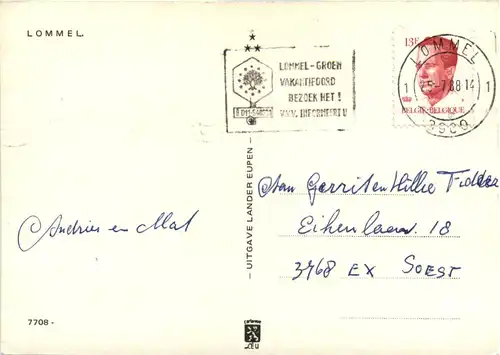 LOMMEL.
LOMMEL-GROEN
VAKANTIEOORD
BEZOEK HET!
V.V.V. INFORMEERT U
13F
BELGIE-BELGIQUE
LOMMEL
1 5-7.88.14 1
3900
Aan Gerrit en Hillie
Eikenlaan. 18
3768 EX SOEST
Andries en Mat
— UITGAVE LANDER EUPEN —
7708 -
LEU